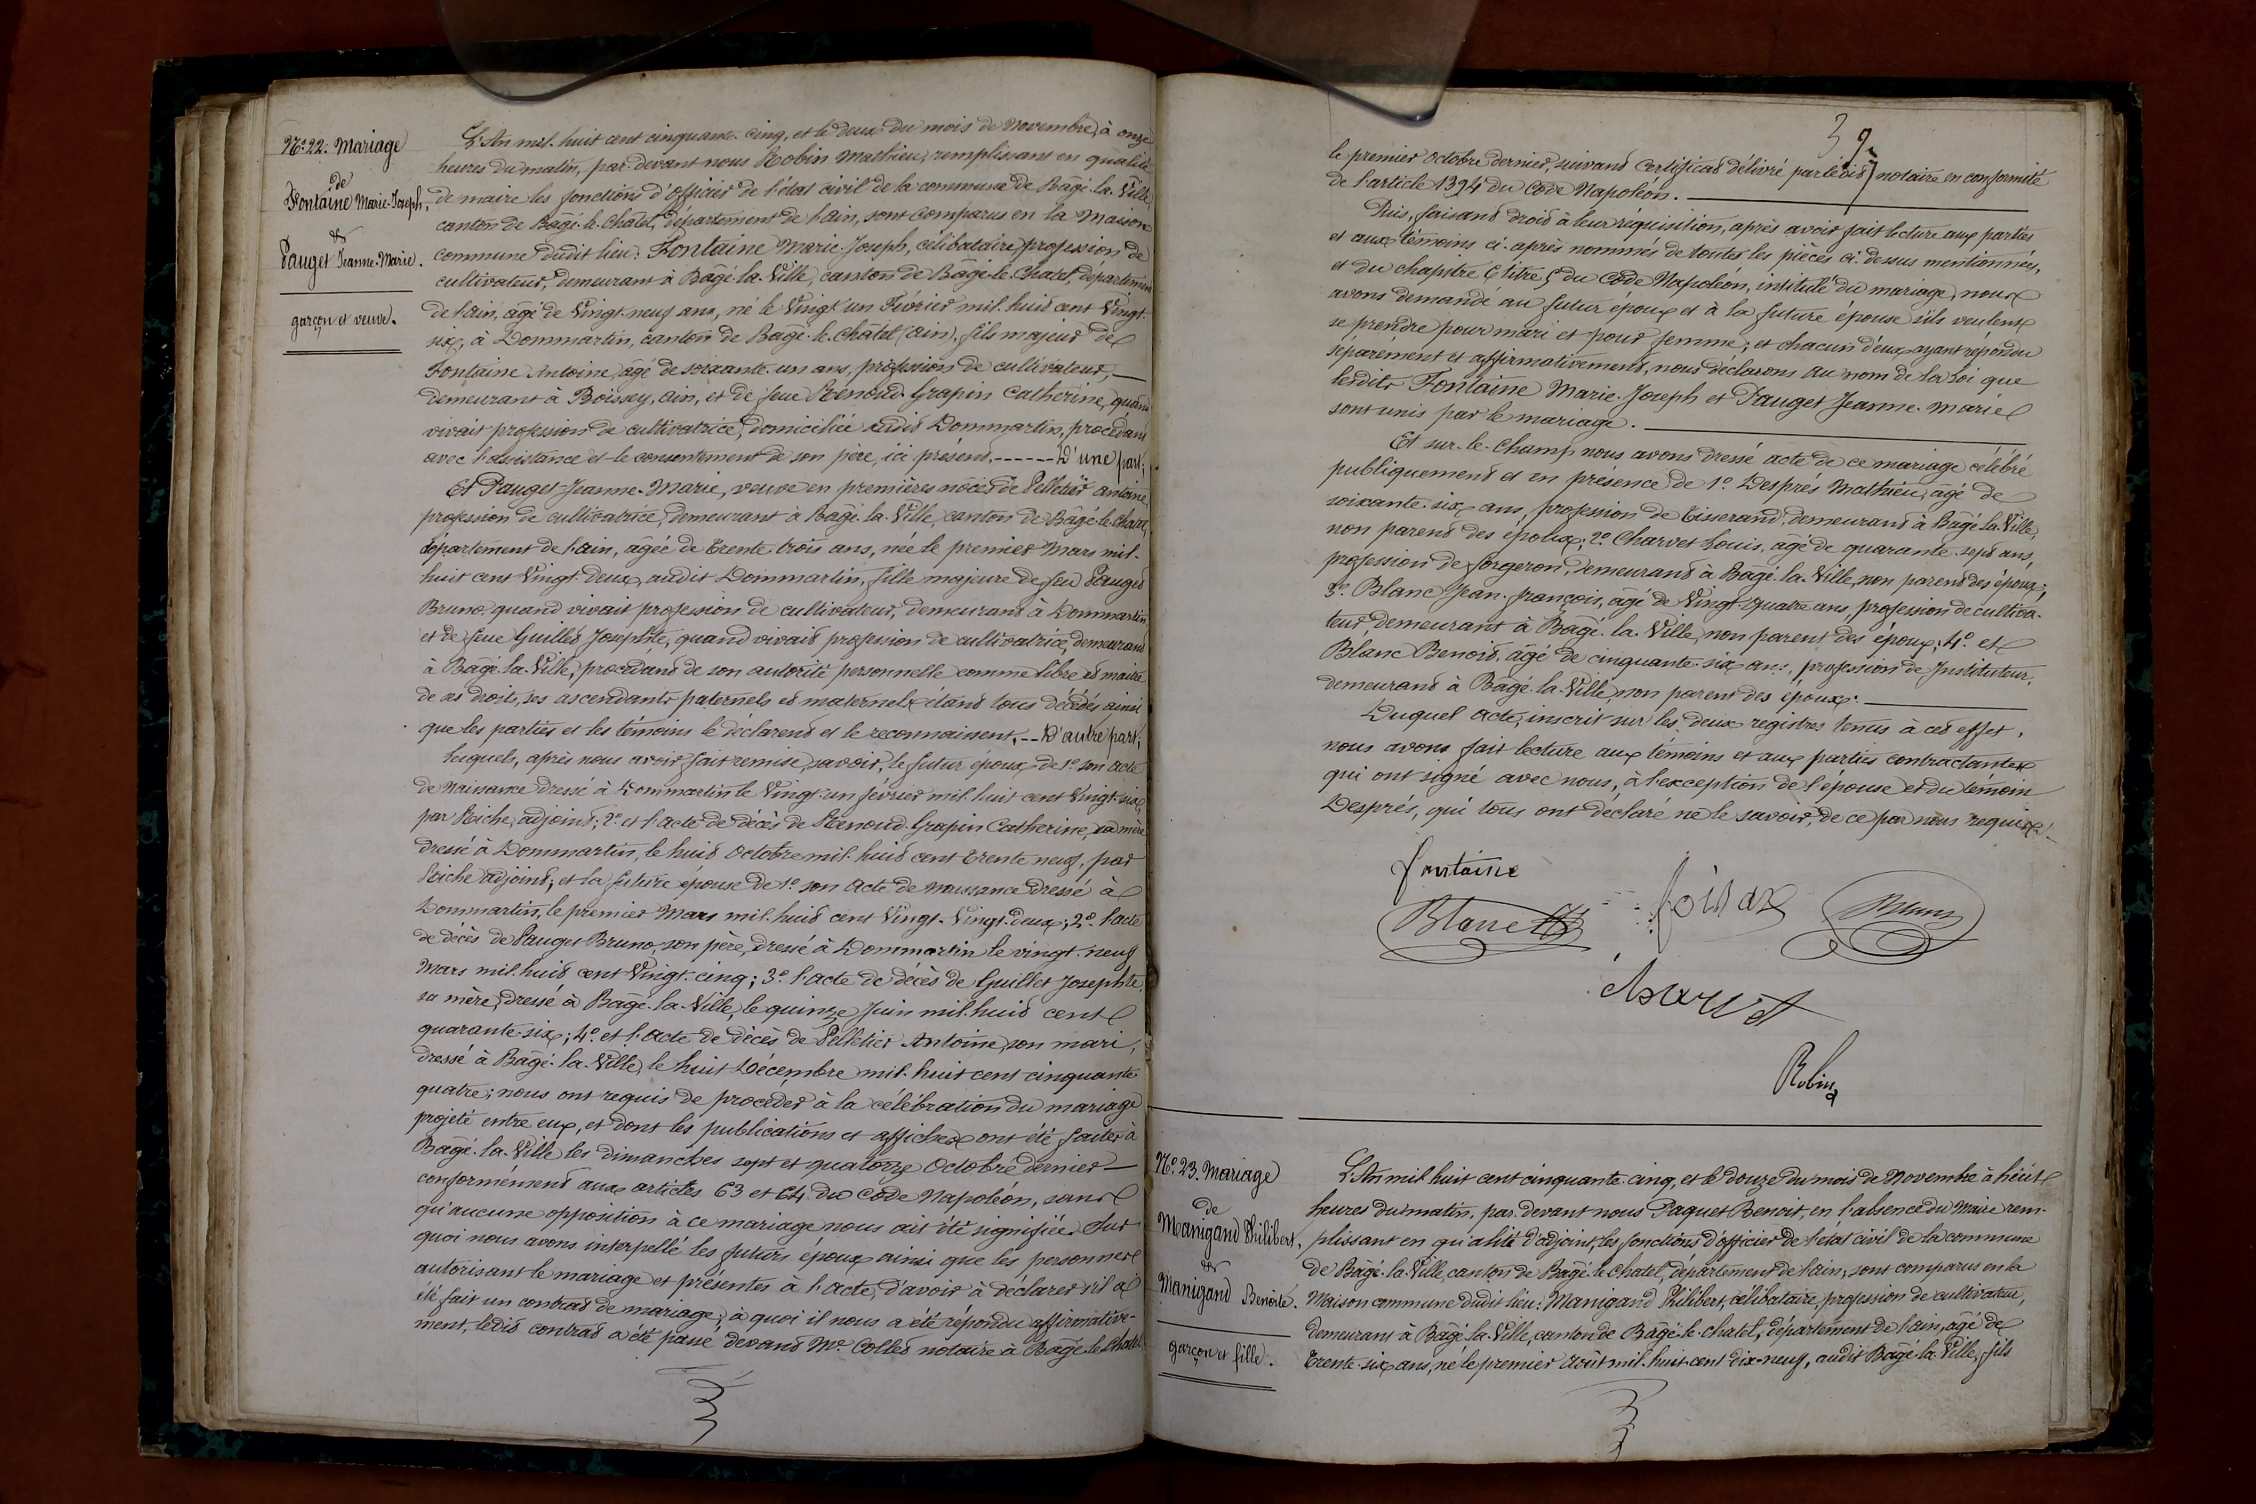 Nº 22. Mariage
de
Fontaine Marie-Joseph,
&
Pauget Jeanne-Marie.
garçon et veuve.
L'An mil huit cent cinquante-cinq, et le deux du mois de Novembre, à onze
heures du matin, par devant nous Robin Mathieu, remplissant en qualité
de maire les fonctions d'officier de l'état civil de la commune de Bâgé-la-Ville,
canton de Bâgé-le-Chatel, département de l'ain, sont comparus en la Maison
commune dudit lieu: Fontaine Marie-Joseph, célibataire, profession de
cultivateur, demeurant à Bâgé-la-Ville, canton de Bâgé-le-Chatel, département
de l'ain, âgé de Vingt-neuf ans, né le Vingt-un Février mil huit cent Vingt-
six, à Dommartin, canton de Bâgé-le-Châtel (ain), fils majeur de
Fontaine Antoine, âgé de soixante-un ans, profession de cultivateur, —
demeurant à Boissey, ain, et de feue Renoud-Grapin Catherine, quand
vivait profession de cultivatrice, domiciliée audit Dommartin, procédant
avec l'assistance et le consentement de son père, ici présent. ------ D'une part;
Et Pauget Jeanne-Marie, veuve en premières noces de Pelletier Antoine
profession de cultivatrice, demeurant à Bâgé-la-Ville, canton de Bâgé-le-Chatel,
département de l'ain, âgée de trente-trois ans, née le premier Mars mil-
huit cent Vingt-deux, audit Dommartin, fille majeure de feu Pauget
Bruno, quand vivait profession de cultivateur, demeurant à Dommartin
et de feue Guillet Josephte, quand vivait profession de cultivatrice, demeurant
à Bâgé-la-Ville, procédant de son autorité personnelle comme libre et maitre
de ses droits, ses ascendants paternels et maternels étant tous décédés ainsi
que les parties et les témoins le déclarent et le reconnaissent, -- D'autre part;
Lesquels, après nous avoir fait remise, savoir, le futur époux de 1º son acte
de Naissance dressé à Dommartin le Vingt-un février mil huit cent Vingt-six,
par Riche, adjoint; 2º et l'acte de décès de Renoud-Grapin Catherine, sa mère
dressé à Dommartin, le huit Octobre mil huit cent trente neuf, par
Riche adjoint; et la future épouse de 1º son acte de naissance dressé à
Dommartin, le premier Mars mil huit cent Vingt-Vingt-deux; 2º l'acte
de décès de Pauget Bruno, son père, dressé à Dommartin le vingt-neuf
Mars mil huit cent Vingt-cinq; 3º l'acte de décès de Guillet Josephte,
sa mère, dressé à Bâgé-la-Ville, le quinze Juin mil huit cent
quarante-six; 4º et l'acte de décès de Pelletier Antoine, son mari,
dressé à Bâgé-la-Ville, le huit Décembre mil huit cent cinquante
quatre; nous ont requis de procéder à la célébration du mariage
projeté entre eux, et dont les publications et affiches ont été faites à
Bâgé-la-Ville les dimanches sept et quatorze Octobre dernier —
conformément aux articles 63 et 64 du Code Napoléon, sans
qu'aucune opposition à ce mariage nous ait été signifiée. Sur
quoi nous avons interpellé les futurs époux ainsi que les personnes
autorisant le mariage et présentes à l'acte, d'avoir à déclarer s'il a
été fait un contrat de mariage; à quoi il nous a été répondu affirmative-
ment, ledit contrat a été passé devant Me Collet notaire à Bâgé-le-Chatel
39
le premier Octobre dernier, suivant Certificat délivré par ledit notaire en conformité
de l'article 1394 du Code Napoléon.
Puis, faisant droit à leur réquisition, après avoir fait lecture aux parties
et aux témoins ci-après nommés de toutes les pièces ci-dessus mentionnées,
et du chapitre 6 titre 5 du Code Napoléon, intitulé du mariage, nous
avons demandé au futur époux et à la future épouse s'ils veulent
se prendre pour mari et pour femme; et chacun d'eux ayant répondu
séparément et affirmativement, nous déclarons au nom de la Loi que
lesdits Fontaine Marie-Joseph et Pauget Jeanne-Marie
sont unis par le mariage.
Et sur-le-champ nous avons dressé acte de ce mariage célébré
publiquement et en présence de 1º Després Mathieu, âgé de
soixante-six ans, profession de Tisserand, demeurant à Bâgé-la-Ville,
non parent des époux; 2º Charvet Louis, âgé de quarante-sept ans,
profession de forgeron, demeurant à Bâgé-la-Ville, non parent des époux;
3º Blanc Jean-françois, âgé de Vingt-quatre ans, profession de cultiva-
teur demeurant à Bâgé-la-Ville, non parent des époux; 4º et
Blanc Benoit, âgé de cinquante-six ans, profession de Instituteur,
demeurant à Bâgé-la-Ville, non parent des époux.
Duquel acte, inscrit sur les deux registres tenus à cet effet,
nous avons fait lecture aux témoins et aux parties contractantes
qui ont signé avec nous, à l'exception de l'épouse et du témoin
Després, qui tous ont déclaré ne le savoir, de ce par nous requis.
fontaine
Blanc
Blanc
charvet
Robin
Nº 23. Mariage
de
Manigand Philibert,
&
Manigand Benoite.
garçon et fille.
L'An mil huit cent cinquante-cinq, et le douze du mois de Novembre à huit
heures du matin, par devant nous Paquet Benoit, en l'absence du Maire rem-
plissant en qualité d'adjoint, les fonctions d'officier de l'état civil de la commune
de Bâgé-la-Ville, canton de Bâgé-le-Chatel, département de l'ain, sont comparus en la
Maison commune dudit lieu: Manigand Philibert, célibataire, profession de cultivateur,
demeurant à Bâgé-la-Ville, canton de Bâgé-le-Chatel, département de l'ain, âgé de
trente-six ans, né le premier août mil huit cent dix-neuf, audit Bâgé-la-Ville, fils